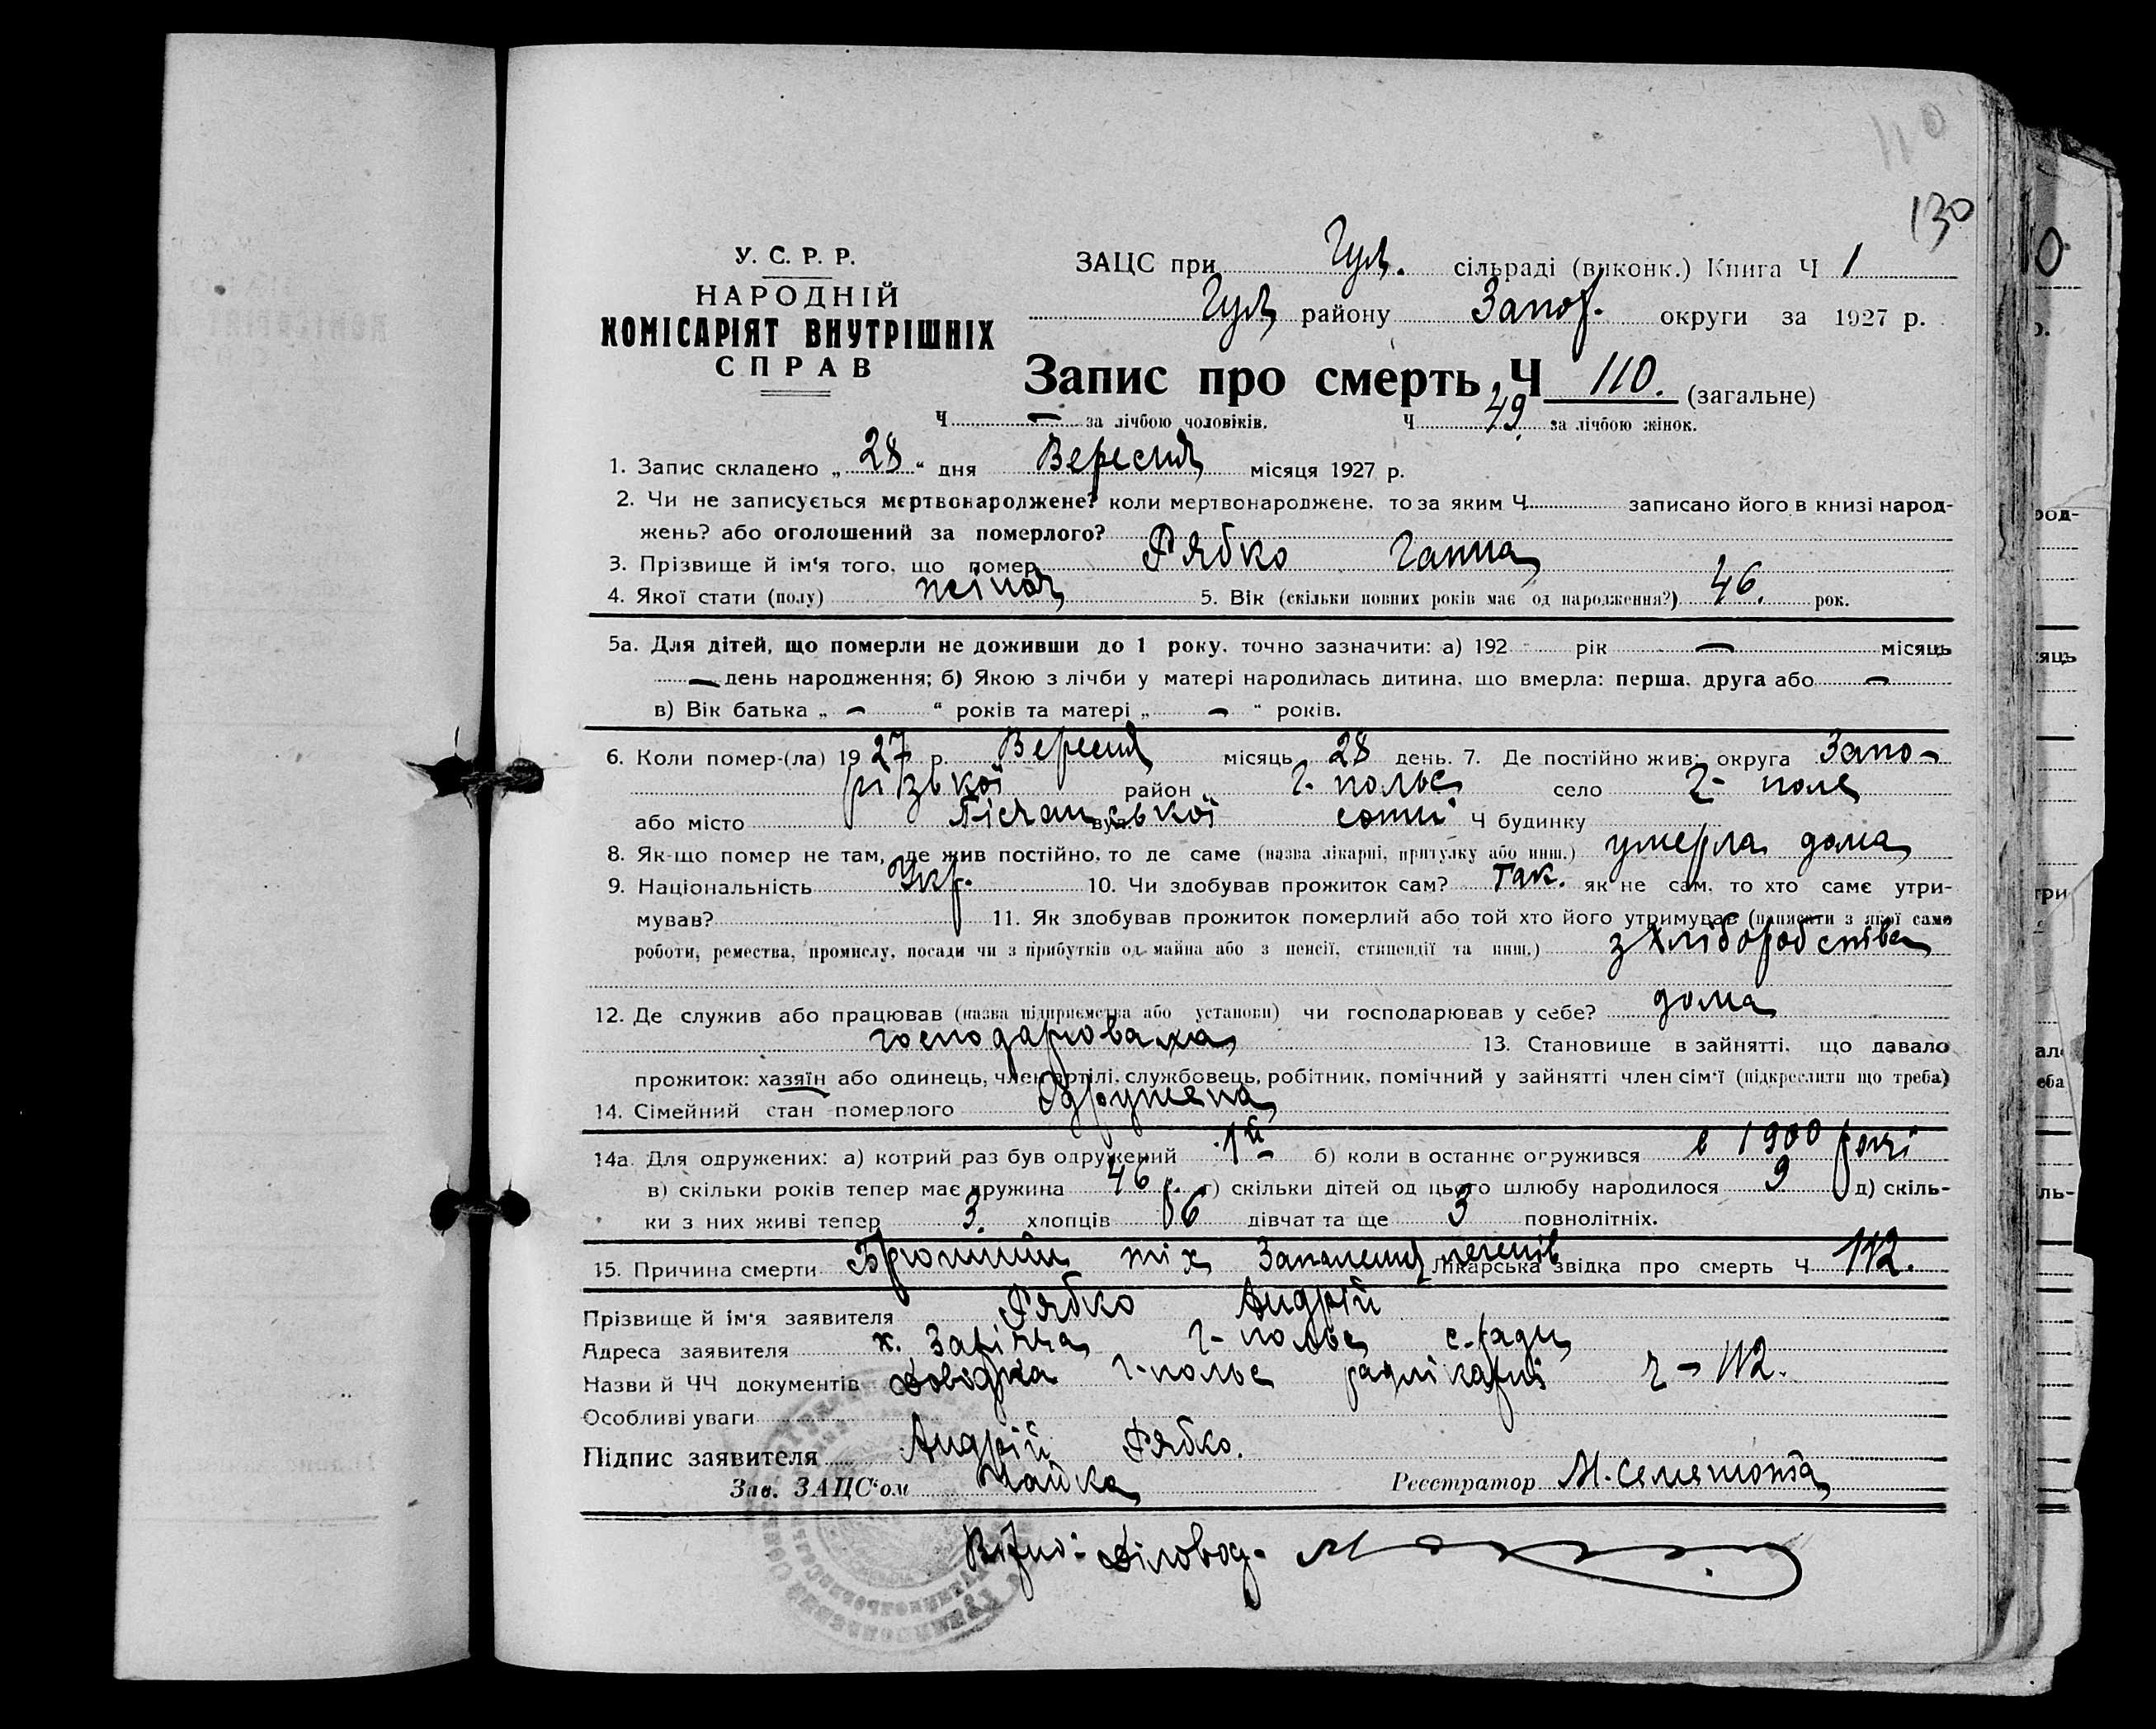 110
130
У. С. Р. Р.
НАРОДНІЙ
КОМІСАРІЯТ ВНУТРІШНІХ
СПРАВ
ЗАЦС при Гул. сільраді (виконк.) Книга Ч 1
Гул району Запор. округи за 1927 р.
Запис про смерть Ч 110. (загальне)
Ч — за лічбою чоловіків. Ч 49. за лічбою жінок.
1. Запис складено „ 28 “ дня Вересня місяця 1927 р.
2. Чи не записується мертвонароджене? коли мертвонароджене, то за яким Ч записано його в книзі народ-
жень? або оголошений за померлого?
3. Прізвище й ім‘я того, що помер Рябко Ганна
4. Якої стати (полу) жіноч 5. Вік (скільки повних років має од народження?) 46. рок.
5а. Для дітей, що померли не доживши до 1 року, точно зазначити: а) 192 - рік — місяць
— день народження; б) Якою з лічби у матері народилась дитина, що вмерла: перша, друга або —
в) Вік батька „ — “ років та матері „ — “ років.
6. Коли помер-(ла) 1927 р. Вересня місяць 28 день. 7. Де постійно жив: округа Запо-
різької район Г. полье село Г- поле
або місто Пісчанської вул. сотні Ч будинку
8. Як-що помер не там, де жив постійно, то де саме (назва лікарні, притулку або инш.) умерла дома
9. Національність Укр. 10. Чи здобував прожиток сам? Так. як не сам, то хто саме утри-
мував? 11. Як здобував прожиток померлий або той хто його утримував (написати з якої само
роботи, ремества, промислу, посади чи з прибутків од майна або з пенсії, стипендії та инш.) з хліборобства
12. Де служив або працював (назва підприємства або установи) чи господарював у себе? дома
господарювала 13. Становище в зайнятті, що давало
прожиток: хазяїн або одинець, член артілі, службовець, робітник, помічний у зайнятті член сім‘ї (підкреслити що треба)
14. Сімейний стан померлого Одружена
14а. Для одружених: а) котрий раз був одружений 1й б) коли в останнє одружився в 1900 році
в) скільки років тепер має дружина 46 р. г) скільки дітей од цього шлюбу народилося 9 д) скіль-
ки з них живі тепер 3. хлопців 6 дівчат та ще 3 повнолітніх.
15. Причина смерти Брюшний тіх Запалення легенів Лікарська звідка про смерть Ч 112.
Прізвище й ім‘я заявителя Рябко Андрій
Адреса заявителя х. Зарічча Г-полье с.-ради
Назви й ЧЧ документів Довідка Г-полье райлікарні ч - 112.
Особливі уваги
Підпис заявителя Андрій Рябко.
Зав. ЗАЦС‘ом Чайка Реєстратор М. Семенюта
Вірно: Діловод.